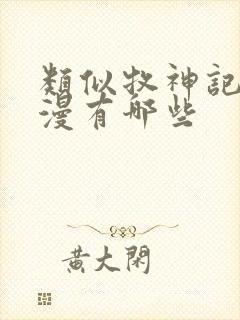 類似牧神記
漫有哪些
黃大閑